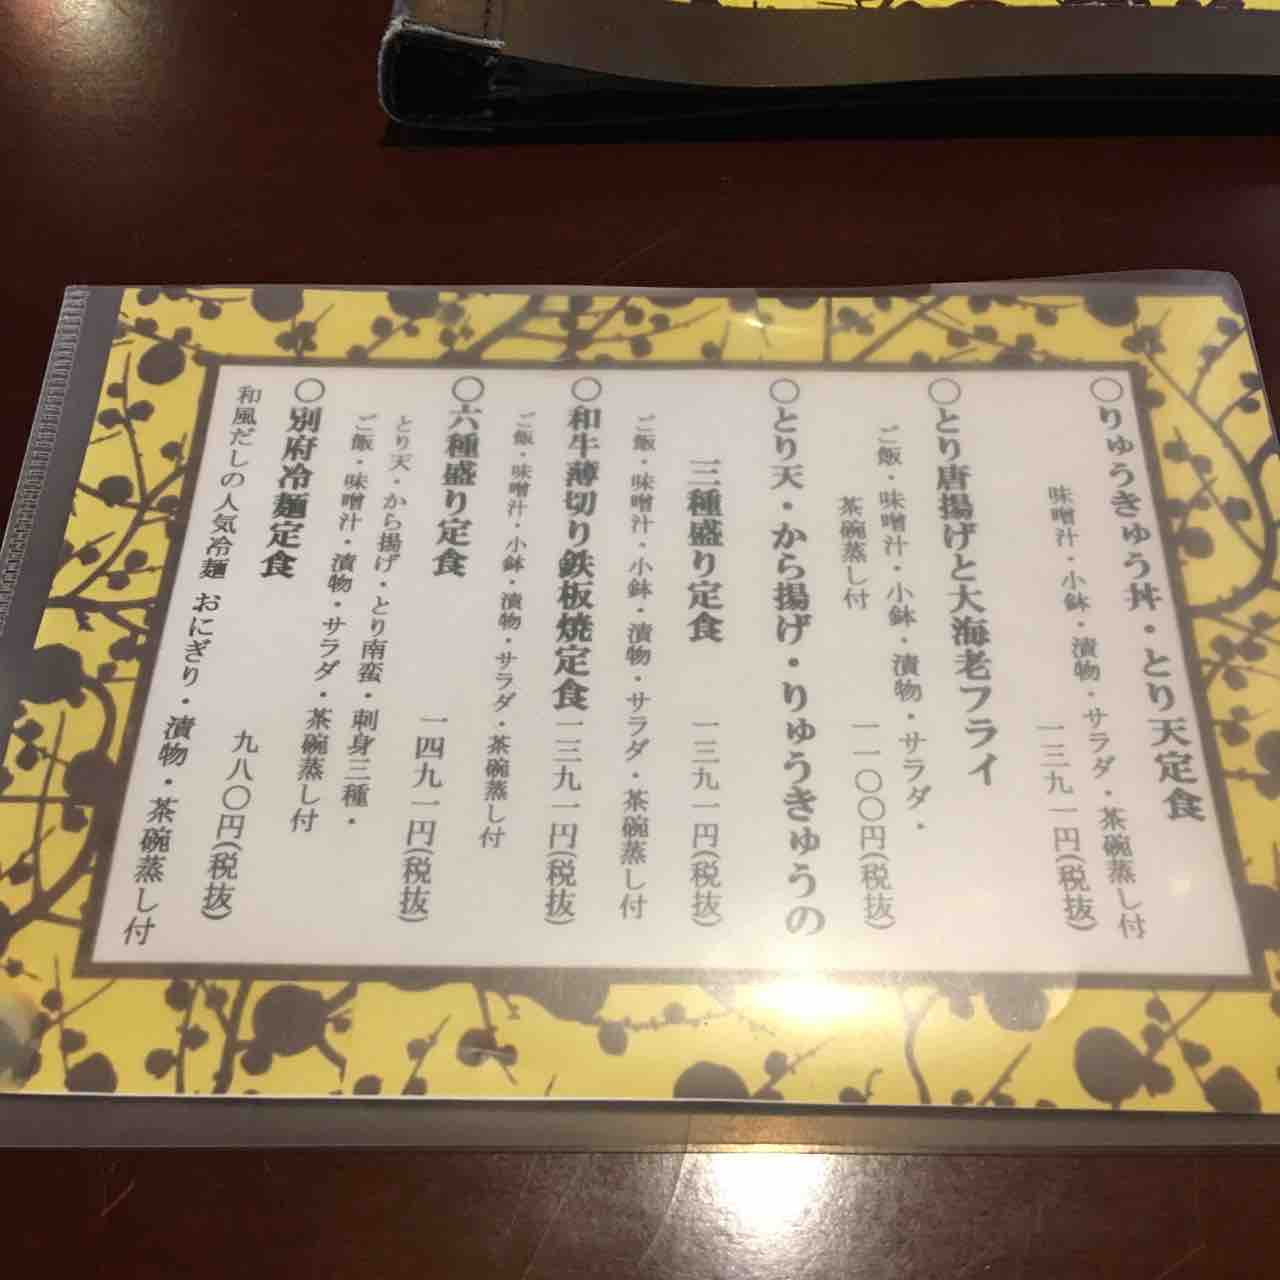 ○りゅうきゅう丼・とり天定食
味噌汁・小鉢・漬物・サラダ・茶碗蒸し付
一三九一円(税抜)
○とり唐揚げと大海老フライ
ご飯・味噌汁・小鉢・漬物・サラダ・
茶碗蒸し付
一一〇〇円(税抜)
○とり天・から揚げ・りゅうきゅうの
三種盛り定食
一三九一円(税抜)
ご飯・味噌汁・小鉢・漬物・サラダ・茶碗蒸し付
○和牛薄切り鉄板焼定食
一三九一円(税抜)
ご飯・味噌汁・小鉢・漬物・サラダ・茶碗蒸し付
○六種盛り定食
一四九一円(税抜)
とり天・から揚げ・とり南蛮・刺身三種・
ご飯・味噌汁・漬物・サラダ・茶碗蒸し付
○別府冷麺定食
九八〇円(税抜)
和風だしの人気冷麺 おにぎり・漬物・茶碗蒸し付